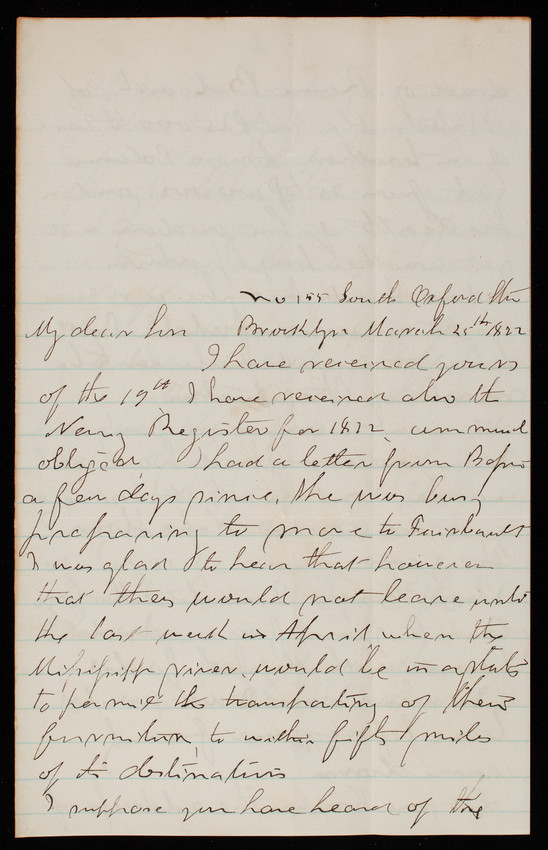 No 155 South Oxford Str
My dear Son Brooklyn March 25th 1872
I have received yours
of the 19th I have received also the
Navy Register for 1872 am much
obliged, I had a letter from
a few days since, She was busy
preparing to move to Fairbault
I was glad to hear that however
that they would not leave until
the last week in April when the
Missisippi river would be in a state
to permit the transporting of their
furniture, to within fifty miles
of its destination
I suppose you have heard of the